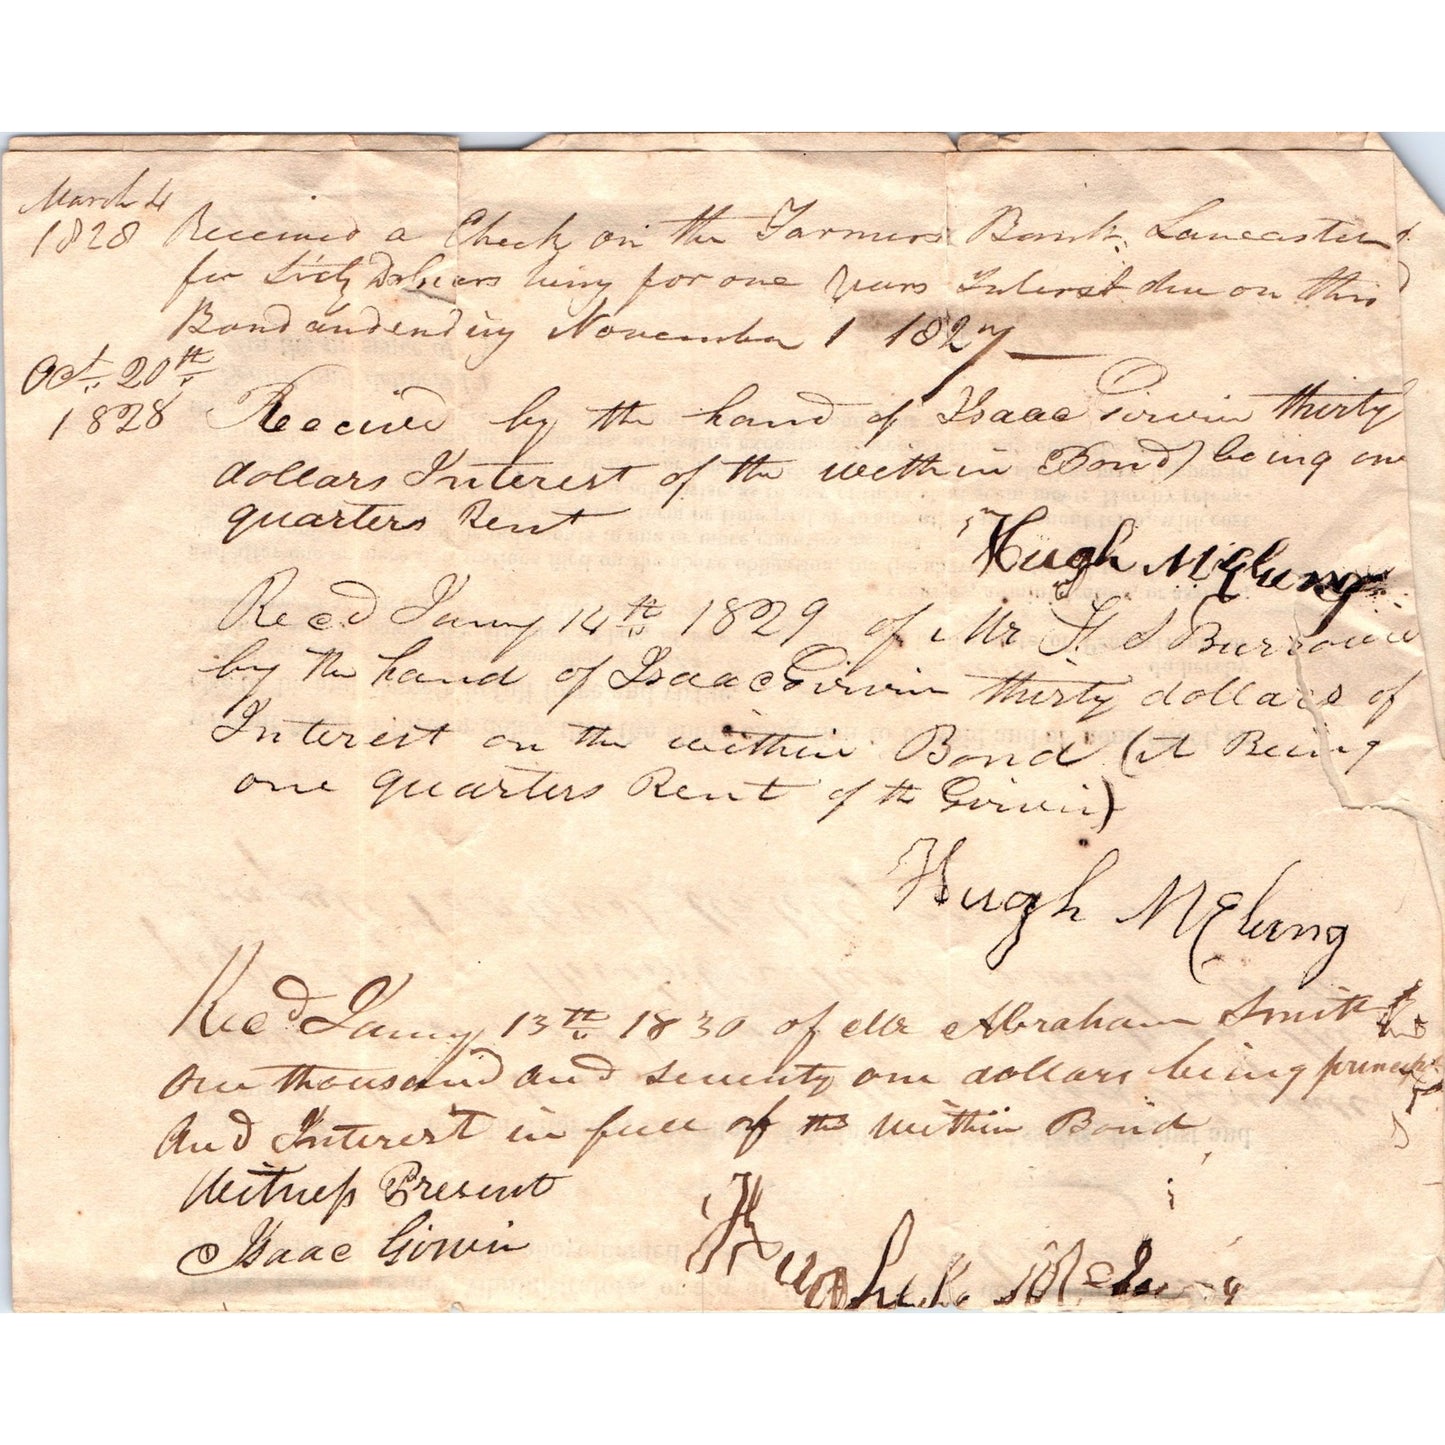 March 4
1828 Received a Check on the Farmers Bank Lancaster
for Sixty Dollars being for one years Interest due on this
Bond and ending November 1 1827
Oct. 20th
1828 Received by the hand of Isaac Girvin thirty
dollars Interest of the within Bond) being one
quarters Rent
Hugh McClung
Recd Jany 14th 1829 of Mr Burrowes
by the hand of Isaac Girvin thirty dollars of
Interest on the within Bond (it Being
one quarters Rent of th Girvin)
Hugh McClung
Recd Jany 13th 1830 of Mr Abraham Smith
one thousand and seventy one dollars being
And Interest in full of the within Bond
Witness Present
Isaac Girvin
Hugh McClung